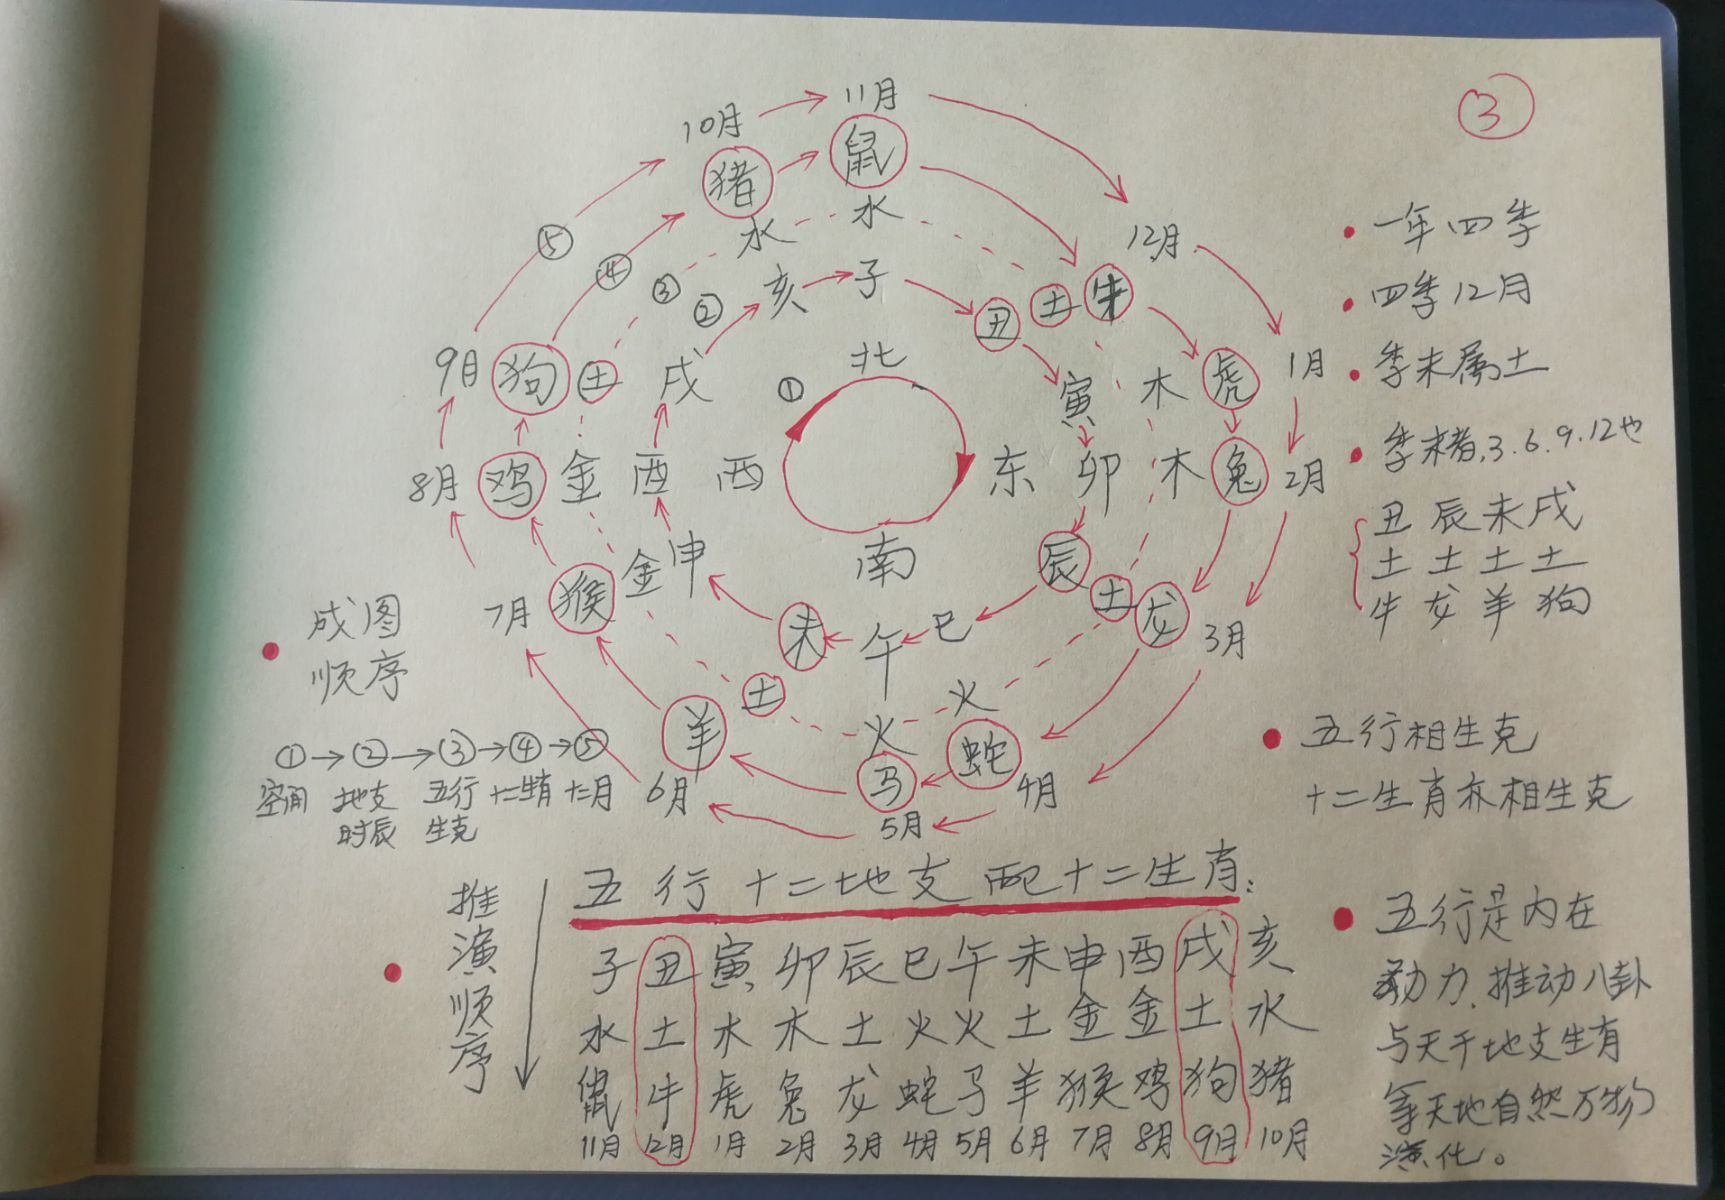 ③
11月
10月
鼠
猪
水
水
12月
⑤
④
③
②
亥
子
丑
土
牛
9月
狗
土
戌
①
北
寅
木
虎
1月
8月
鸡
金
酉
西
东
卯
木
兔
2月
南
7月
猴
金
申
辰
土
龙
3月
未
午
巳
土
火
火
羊
马
蛇
6月
5月
4月
一年四季
四季12月
季末属土
季末者,3.6.9.12也
丑 辰 未 戌
土 土 土 土
牛 龙 羊 狗
成图
顺序
①→②→③→④→⑤
空间 地支 五行 十二生肖 十二月
时辰 生克
五行相生克
十二生肖亦相生克
五行十二地支配十二生肖:
推演顺序
子 丑 寅 卯 辰 巳 午 未 申 酉 戌 亥
水 土 木 木 土 火 火 土 金 金 土 水
鼠 牛 虎 兔 龙 蛇 马 羊 猴 鸡 狗 猪
11月 12月 1月 2月 3月 4月 5月 6月 7月 8月 9月 10月
五行是内在
动力,推动八卦
与天干地支生肖
等天地自然万物
演化。